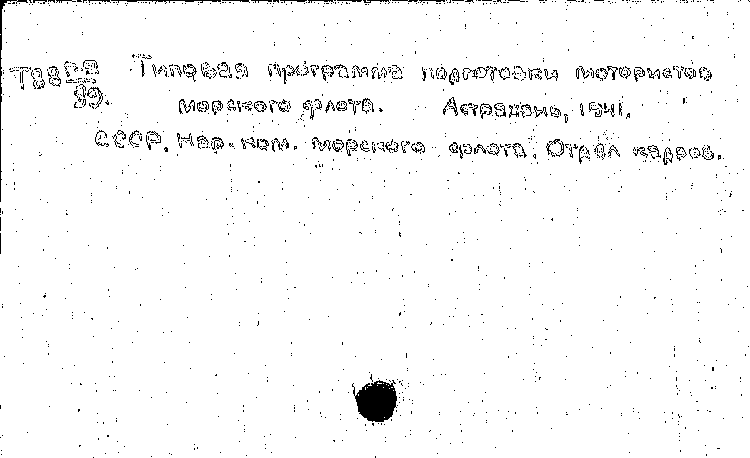 Типовая программа подготовки мотористов
морского флота. Астрахань, 1941.
СССР. Нар. ком. морского флота. Отдел кадров.